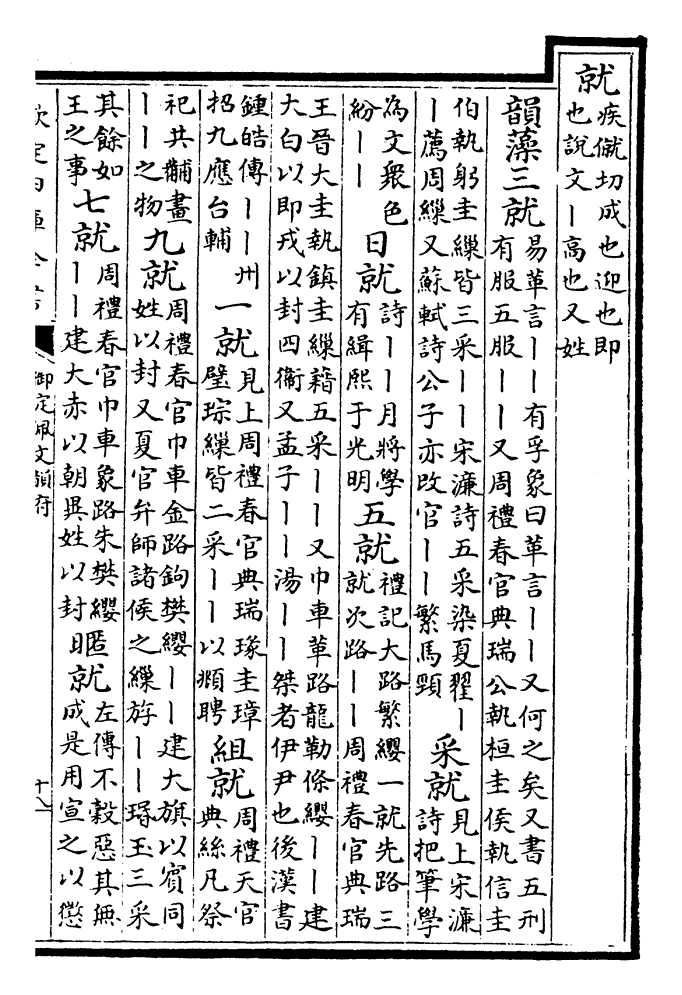 就疾僦切成也迎也即也說文丨高也又姓
韻藻三就易革言丨丨有孚象曰革言丨丨又何之矣又書五刑有服五服丨丨又周禮春官典瑞公執桓圭侯執信圭
伯執躬圭繅皆三采丨丨宋濂詩五采染夏翟丨丨薦周繅又蘇軾詩公子亦改官丨丨繁馬頸采就見上宋濂詩把筆學
為文衆色紛丨丨日就詩丨丨月將學有緝熙于光明五就禮記大路繁纓一就先路三就次路丨丨周禮春官典瑞
王晉大圭執鎮圭繅藉五采丨丨又巾車革路龍勒條纓丨丨建大白以即戎以封四衞又孟子丨丨湯丨丨桀者伊尹也後漢書
鍾皓傳丨丨州招九應台輔一就見上周禮春官典瑞瑑圭璋璧琮繅皆二采丨丨以頫聘組就周禮天官典絲凡祭
祀共黼畫丨丨之物九就周禮春官巾車金路鉤樊纓丨丨建大旗以賓同姓以封又夏官弁師諸侯之繅斿丨丨瑉玉三采
其餘如王之事七就周禮春官巾車象路朱樊纓丨丨建大赤以朝異姓以封暱就左傳不穀惡其無成是用宣之以懲
欽定四庫全書
御定佩文韻府
十八